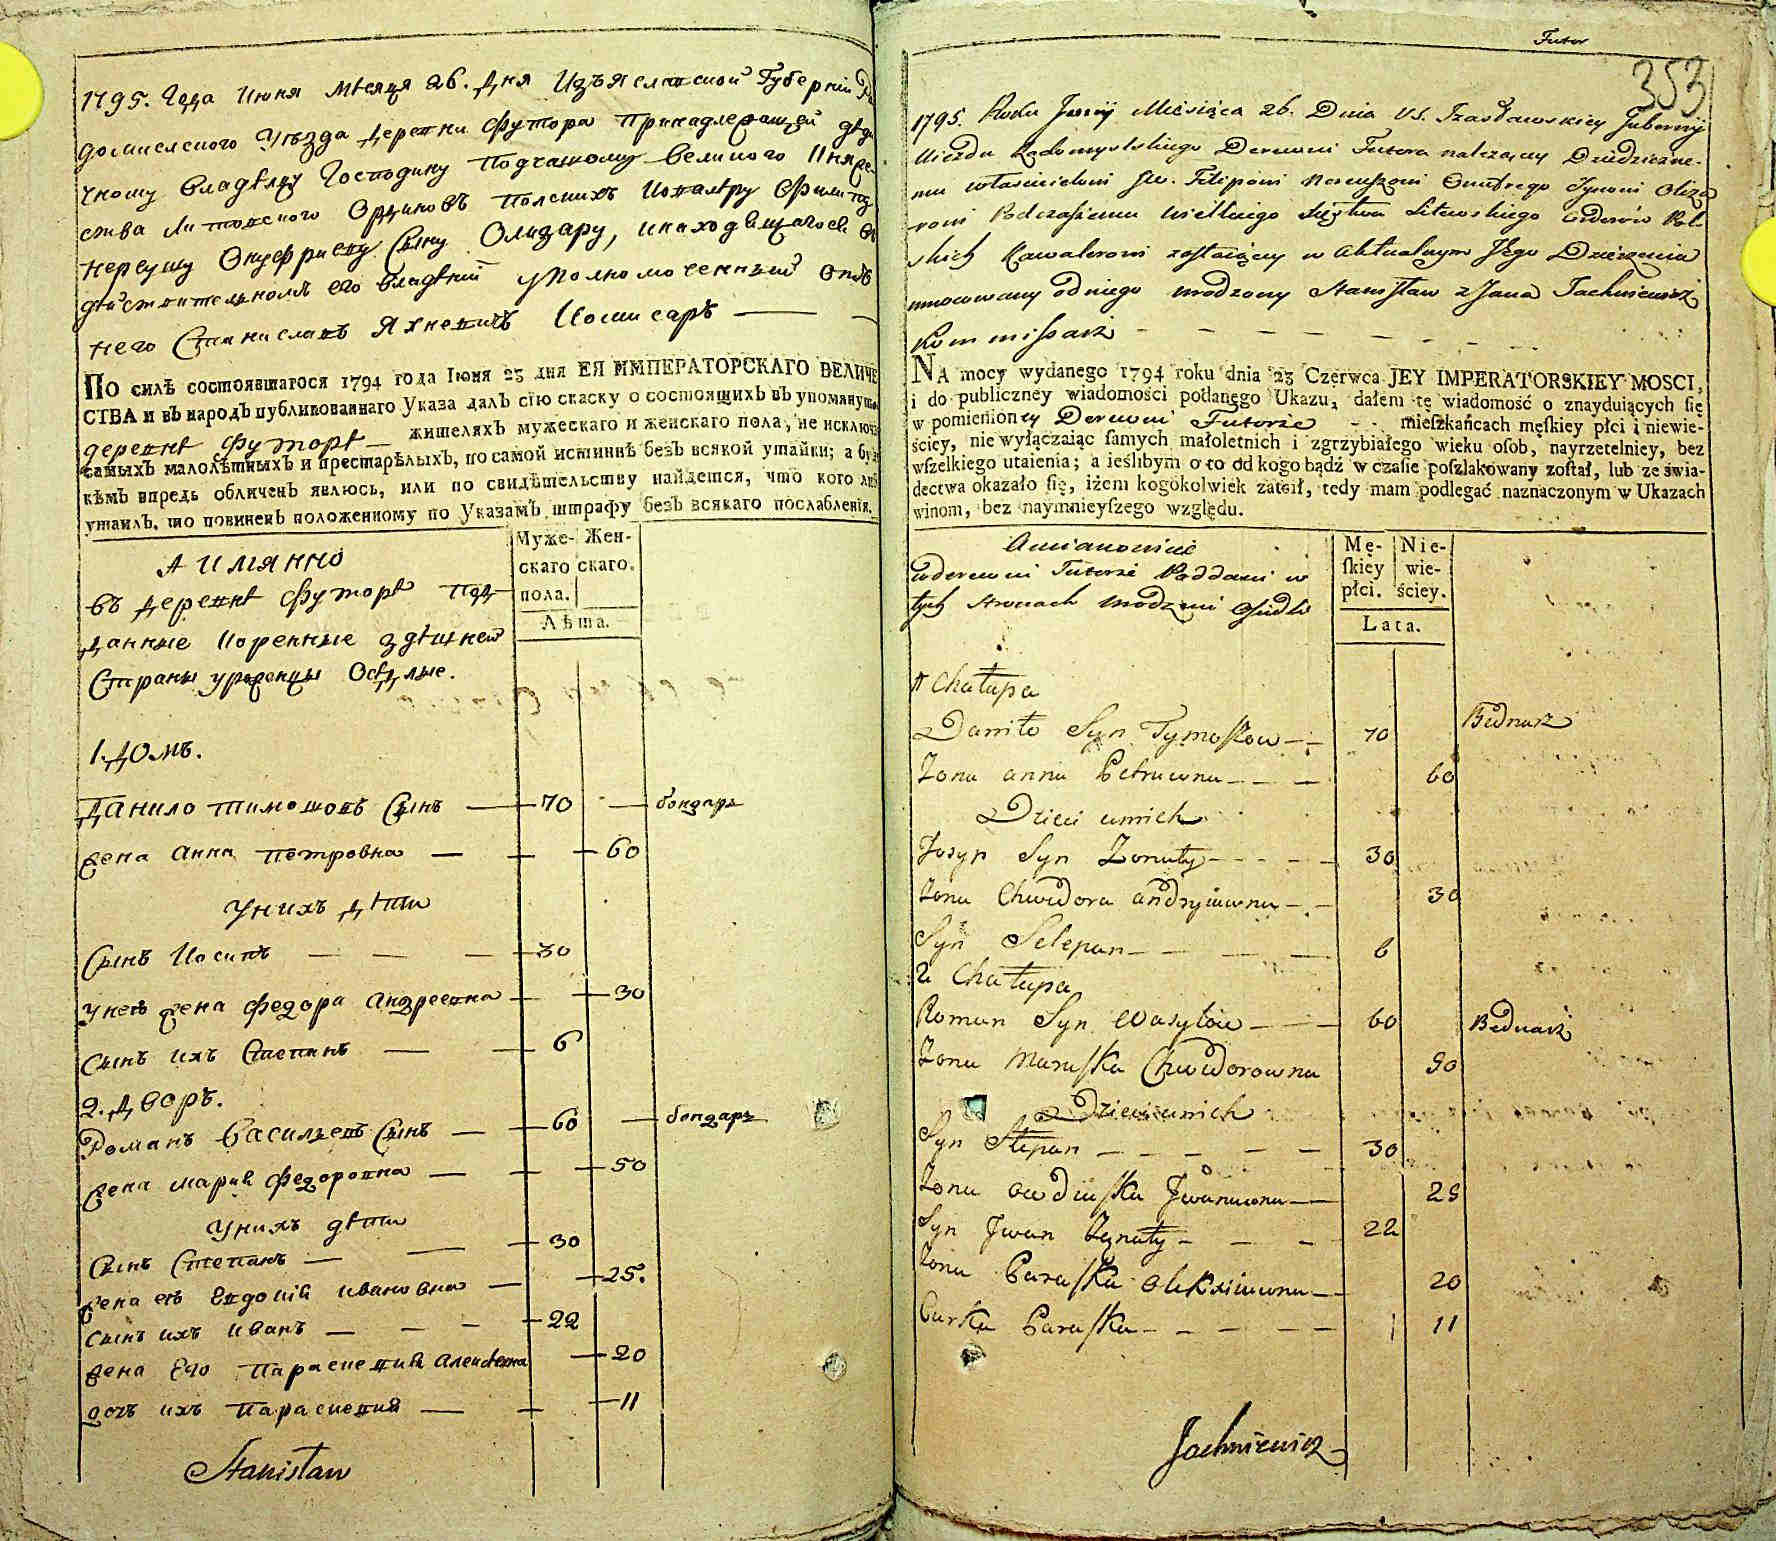 1795. Года Июня месяца 26. дня Изъяславской Губернiи
домысского Уѣзда деревни Футора принадлежащей
чному владѣлцу Господину Подчашому великого Княже
ства Литовского Орденовъ Полскихъ Кавалѣру Филипу
Нереушу Онуфриеву Сыну Олизару, и находящагося
дѣйствителномъ его владѣнiи уполномоченный отъ
него Станиславъ Яхневичъ Комисаръ —
По силѣ состоявшагося 1794 года Iюня 23 дня ЕЯ ИМПЕРАТОРСКАГО ВЕЛИЧЕ
СТВА и въ народъ публикованнаго Указа далъ сiю скаску о состоящихъ въ упомянут
деревнѣ Футорѣ — жителяхъ мужескаго и женскаго пола, не исключа
самыхъ малолѣтныхъ и престарѣлыхъ, по самой истиннѣ безъ всякой утайки; а
кѣмъ впредь обличенъ явлюсь, или по свидѣтельству найдется, что кого
утаилъ, то повиненъ положенному по Указамъ штрафу безъ всякаго послабленiя.
А имянно
въ деревнѣ Футорѣ под-
данные коренные здѣшней
Страны уроженцы Осѣдлые.
Муже- Жен-
скаго скаго.
пола.
Лѣта.
1. домъ.
Данило Тимошовъ Сынъ — 70 — бондарь
жена Анна Петровна — 60
У нихъ дѣти
Сынъ Иосипъ — 30
у него жена Федора Андреевна — 30
сынъ ихъ Степанъ — 6
2. дворъ.
Романъ Васильевъ Сынъ — 60 — бондарь
жена Мария Федоровна — 50
У нихъ дѣти
Сынъ Степанъ — 30
жена его Евдокия Ивановна — 25.
сынъ ихъ Иванъ — 22
жена Его Параскевия Алексѣевна — 20
дочь ихъ Параскевия — 11
Stanisław
Futor
353
1795. Roku Junij Miesiąca 26. Dnia V.S. Izasławskiey Gubernij
Uiezdu Radomyslskiego Derewni Futora należącey Dziedziczne-
mu właścicielowi Jw. Filipowi Nereuszowi Onufrego Synowi Oliza
rowi Podczaszemu wielkiego Xięstwa Litewskiego Orderow Pol-
skich Kawalerowi zostaiącey w Aktualnym Jego Dzierżeniu
umocowany od niego urodzony Stanisław z Jana Jachniewicz
Kommissarz - - - - - -
NA mocy wydanego 1794 roku dnia 23 Czerwca JEY IMPERATORSKIEY MOSCI,
i do publiczney wiadomości podanego Ukazu, dałem tę wiadomość o znayduiących się
w pomienioney Derewni Futorze - - mieszkańcach męskiey płci i niewie-
ściey, nie wyłączaiąc samych małoletnich i zgrzybiałego wieku osob, nayrzetelniey, bez
wszelkiego utaienia; a ieślibym o to od kogo bądź w czasie poszlakowany został, lub ze świa-
dectwa okazało się, iżem kogokolwiek zataił, tedy mam podlegać naznaczonym w Ukazach
winom, bez naymnieyszego względu.
Amianowicie
w derewni Futorze Poddani w
tych stronach urodzeni Osiedli
Mę- Nie-
skiey wie-
płci. ściey.
Lata.
1 Chałupa
Daniło Syn Tymoszkow - - 70 Bednarz
Żona anna Petruwna - - - 60
Dzieci u nich
Josyp Syn Żonaty - - - - 30
Żona Chwedora andryiuwna - - 30
Syn Stepan - - - - 6
2 Chałupa
Roman Syn Wasylow - - - 60 Bednarz
Żona Maruszka Chwedorowna 50
Dzieci u nich
Syn Stepan - - - - - 30
Żona Owdiuszka Jwanuwna - - 25
Syn Jwan Żonaty - - - 22
Żona Paraszka Oleksiiuwna - - 20
Curka Paraszka - - - - - 11
Jachniewicz